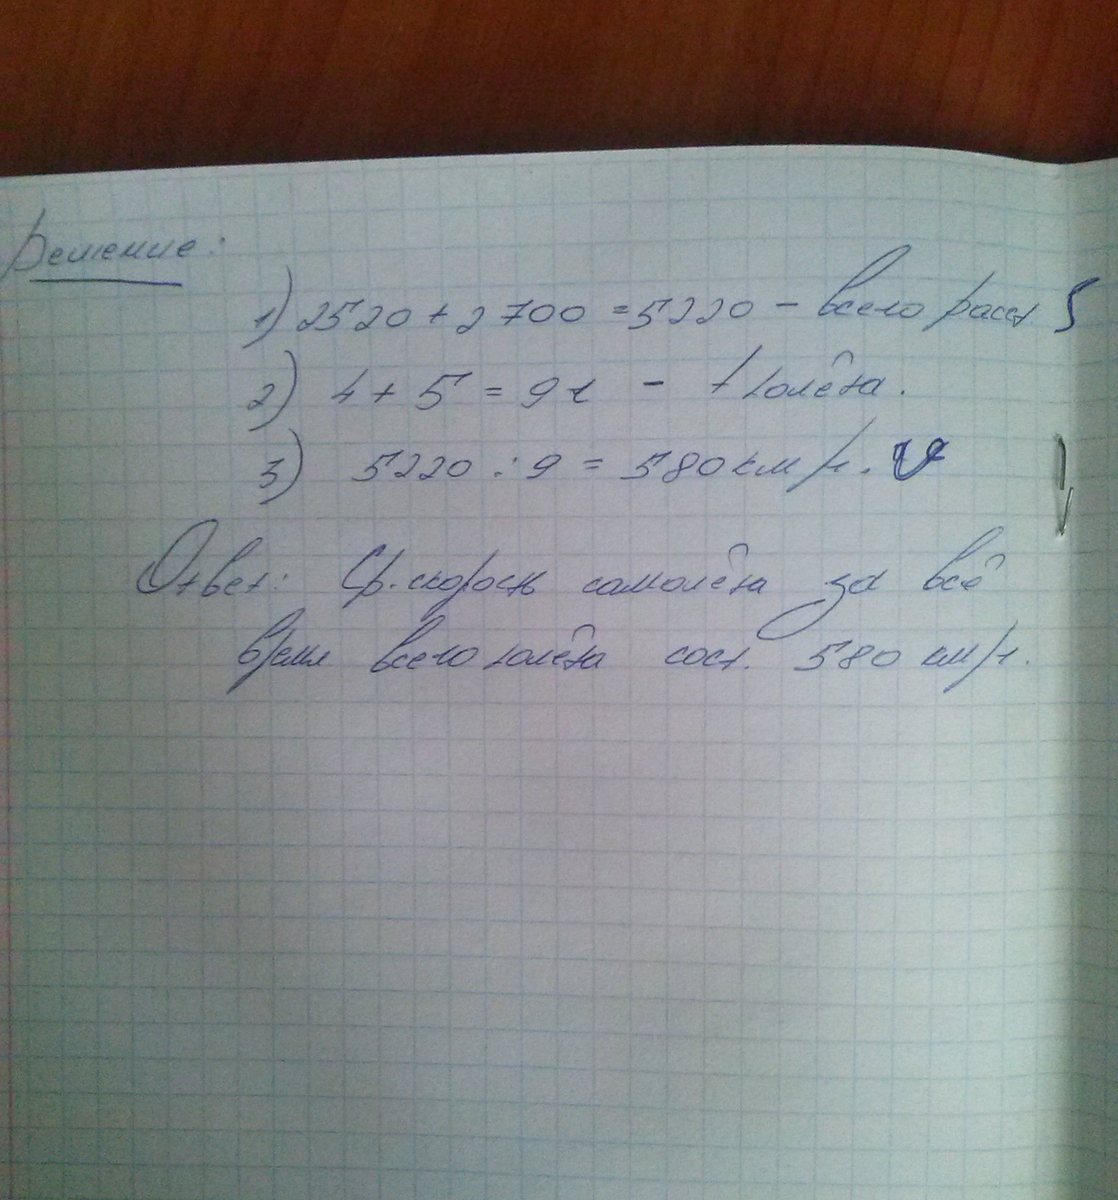 Решение:
1) 2520 + 2700 = 5220 - всего расст. S
2) 4 + 5 = 9 ч - t полёта.
3) 5220 : 9 = 580 км/ч. V
Ответ: Ср. скорость самолёта за всё
время всего полёта сост. 580 км/ч.